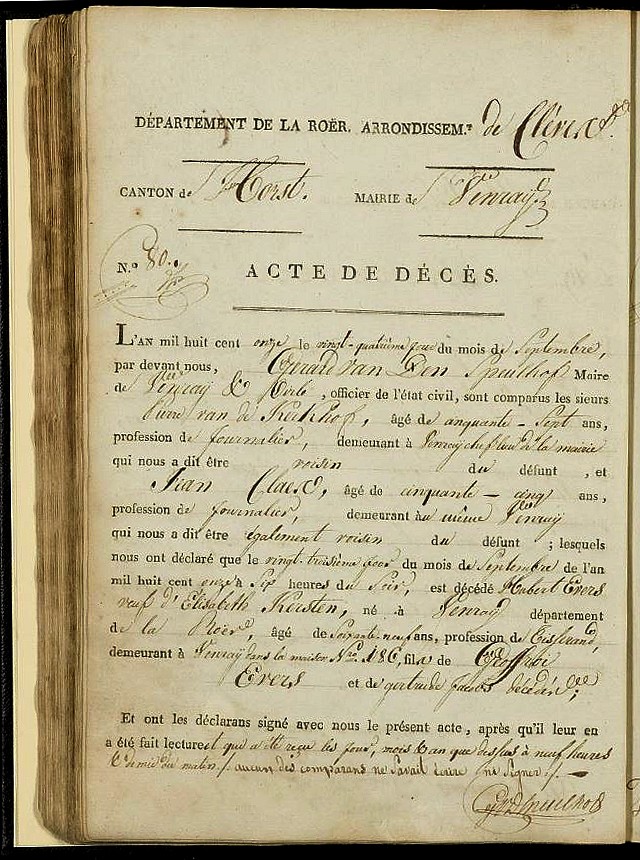 DÉPARTEMENT DE LA ROËR. ARRONDISSEM.t de Clèves
CANTON de Horst. MAIRIE de Venray
N.o 80.
ACTE DE DÉCÈS.
L'AN mil huit cent onze le vingt-quatrième jour du mois de Septembre,
par devant nous, Gerard van Den Speulhof Maire
de Venray & Oirlo, officier de l'état civil, sont comparus les sieurs
Pierre van de Kerkhof, âgé de cinquante-Sept ans,
profession de journalier, demeurant à Venray chef lieu de la mairie
qui nous a dit être voisin du défunt, et
Jean Claes, âgé de cinquante-cinq ans,
profession de journalier, demeurant au même Venray
qui nous a dit être également voisin du défunt; lesquels
nous ont déclaré que le vingt-troisième jour du mois de Septembre de l'an
mil huit cent onze à Six heures du Soir, est décédé Hubert Evers
veuf d'Elisabeth Kersten, né à Venray département
de la Roër, âgé de Soixante neuf ans, profession de Tisserand,
demeurant à Venray dans la maison Nro. 186, fils de Geoffroi
Evers et de gertrude Jacobs décédés;
Et ont les déclarans signé avec nous le présent acte, après qu'il leur en
a été fait lecture et qui a été reçu les jour, mois & an que dessus à neuf heures
& demie du matin / aucun des comparans ne Savait écrire ni Signer /. —